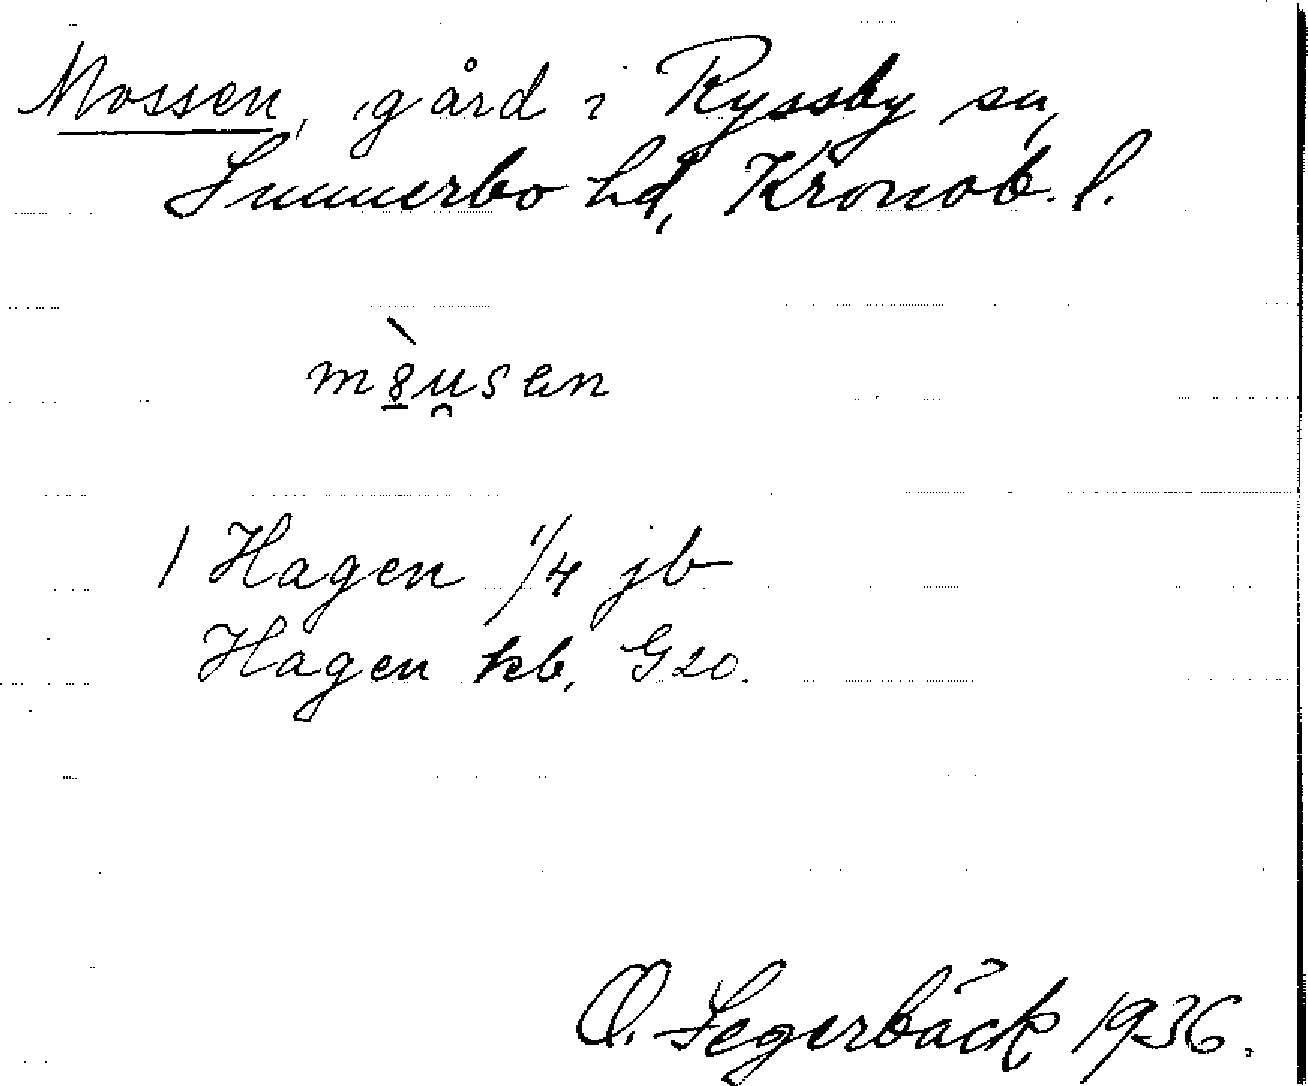 Mossen, gård i Ryssby sn,
Sunnerbo hd, Kronob. l.
mo̱̖u̯sen
1 Hagen 1/4 jb
Hagen kb, G20.
O. Segerbäck 1936.